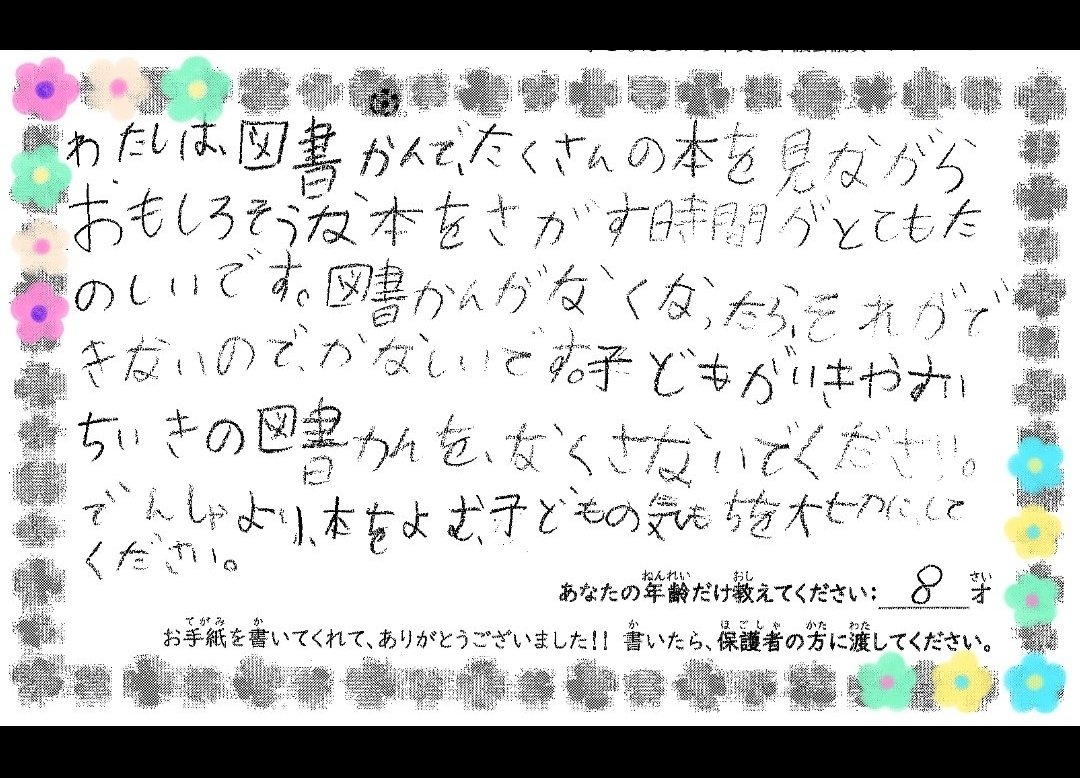 わたしは、図書かんで、たくさんの本を見ながら
おもしろそうな本をさがす時間がとてもた
のしいです。図書かんがなくなったら、それがで
きないので、かなしいです。子どもがいきやすい
ちいきの図書かんを、なくさないでください。
でんしゃより、本をよむ、子どもの気もちを大せつにして
ください。
ねんれい おし さい
あなたの年齢だけ教えてください: 8 才
てがみ か か ほごしゃ かた わた
お手紙を書いてくれて、ありがとうございました!! 書いたら、保護者の方に渡してください。